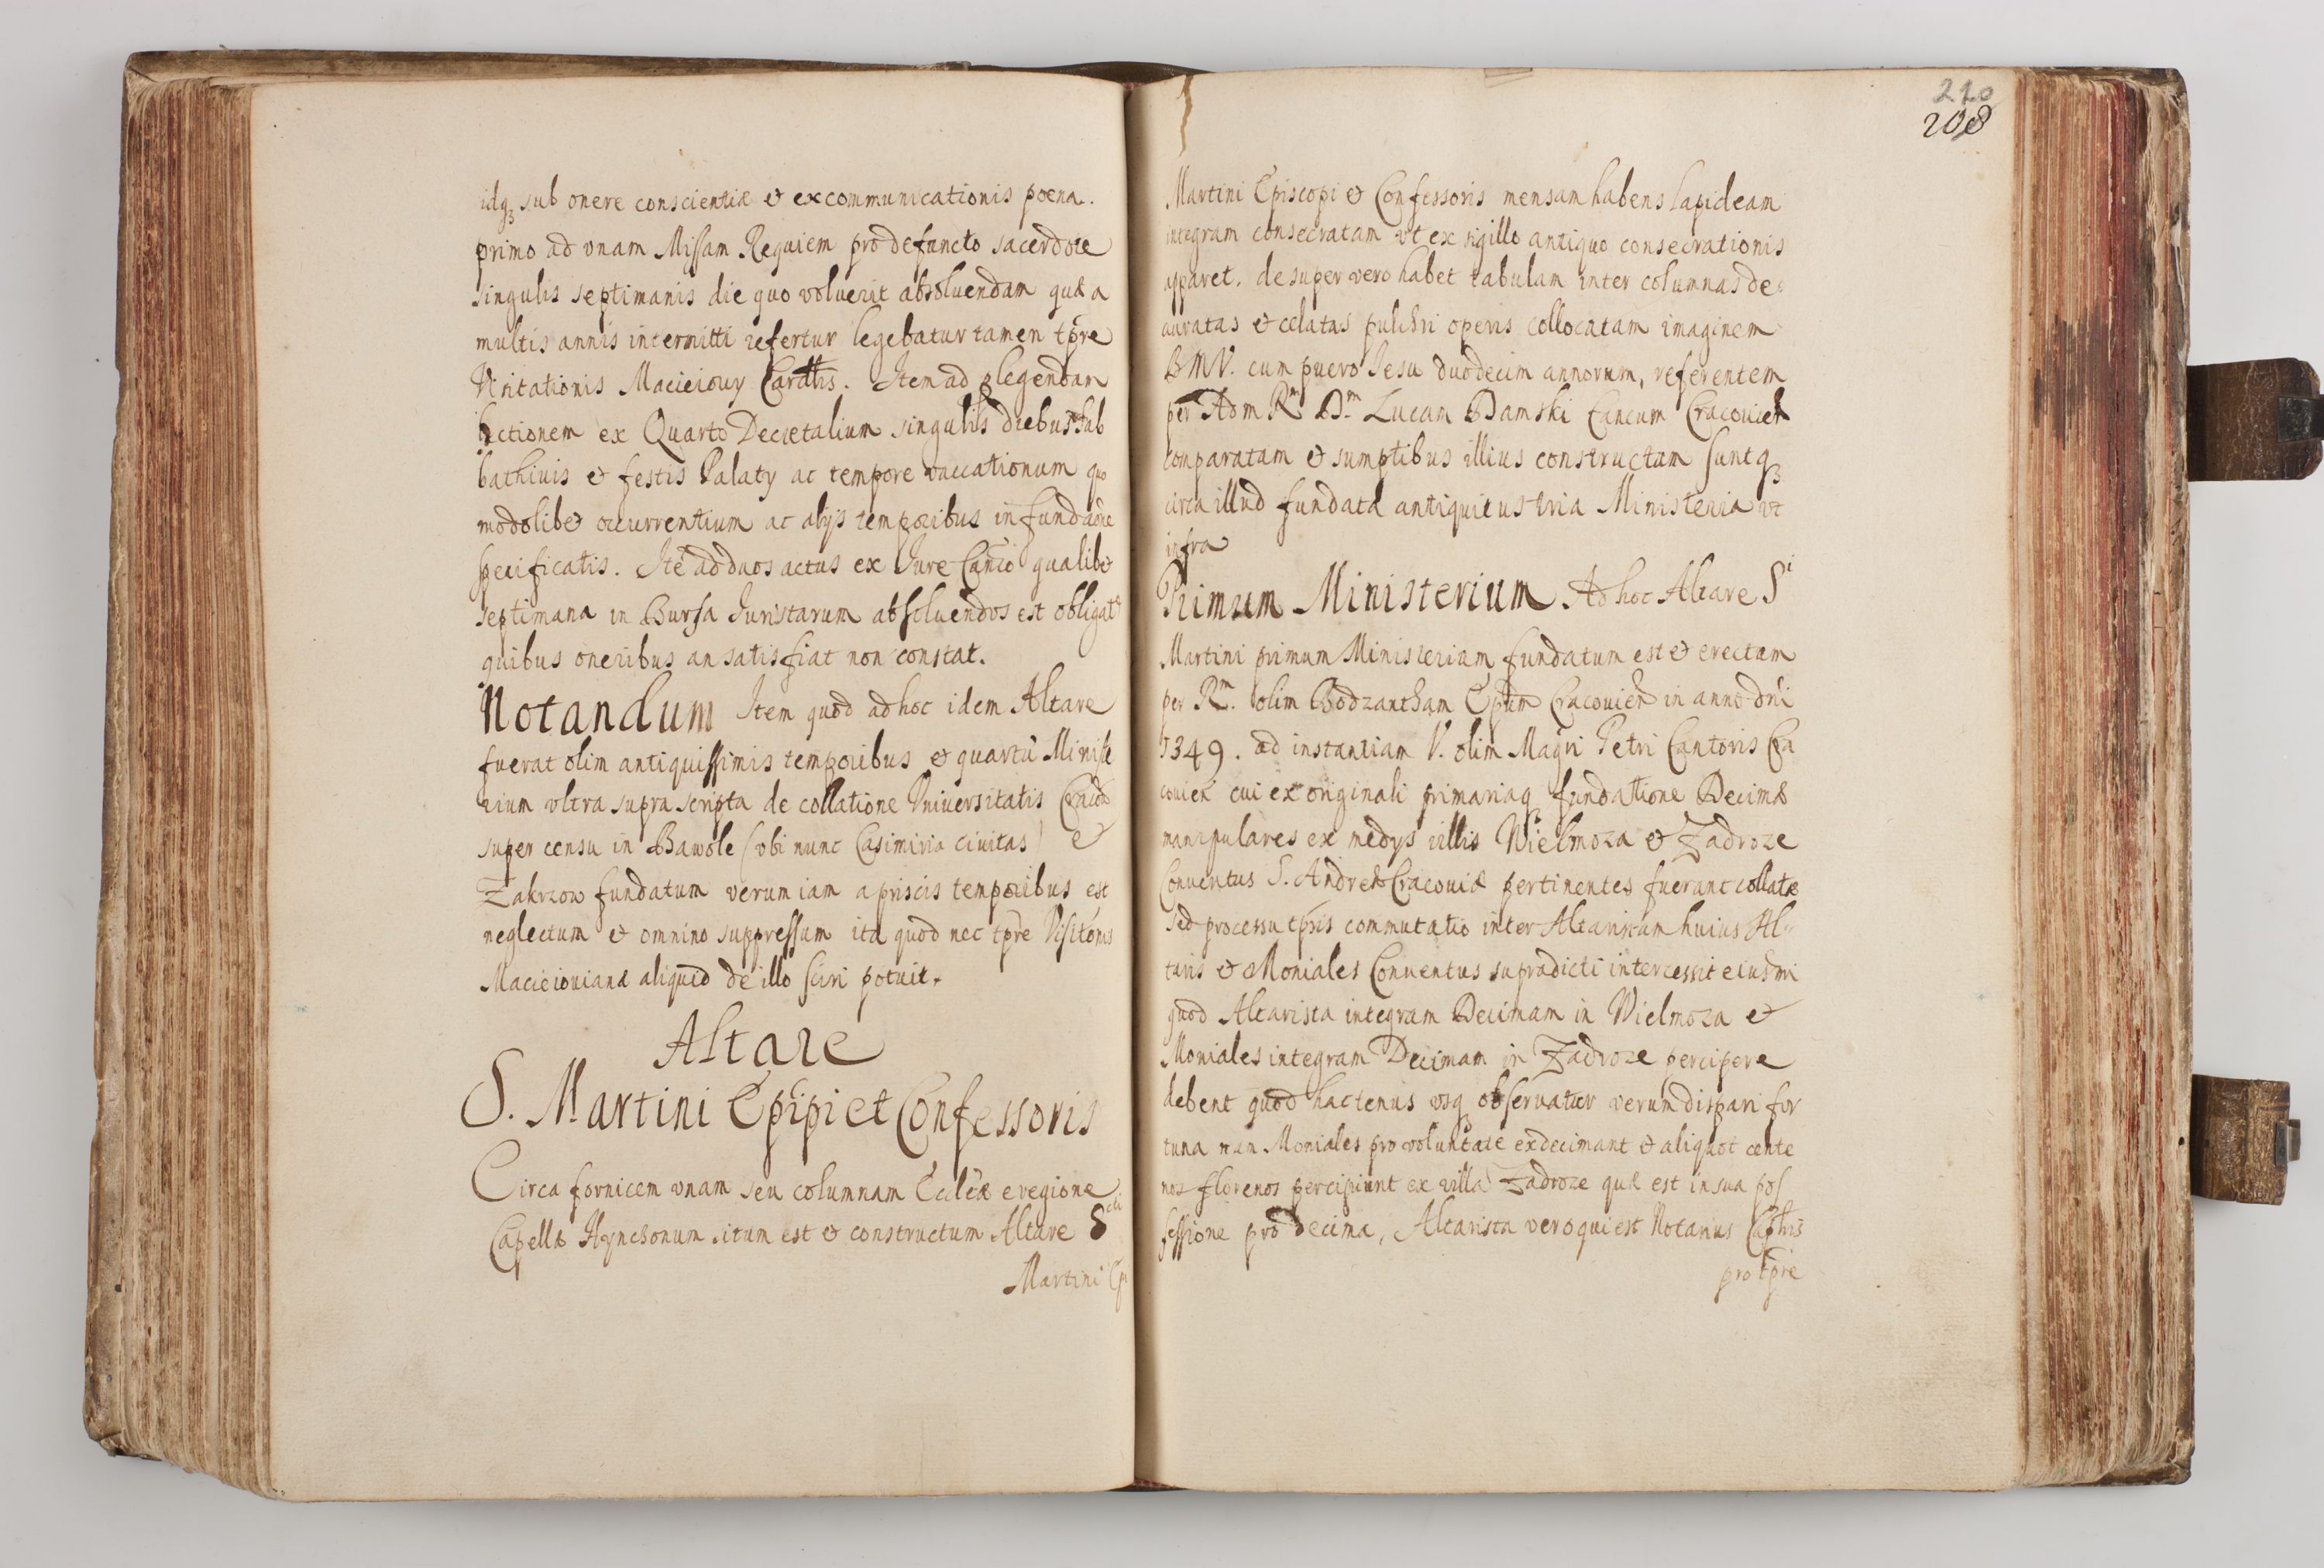 idqꝫ sub onere conscientiæ & excommunicationis poena.
primo ad vnam Missam Requiem pro defuncto sacerdote
singulis septimanis die quo voluerit absoluendam quæ a
multis annis intermitti refertur legebatur tamen tpre
Visitationis Macieiouy Cardlis. Item ad plegendam
lectionem ex Quarto Decretalium singulis diebus sab
bathiuis & festis Palaty ac tempore vaccationum quo
modolibet occurrentium ac alijs temporibus in fundaone
specificatis. Itē ad duos actus ex Iure Canco qualibet
septimana in Bursa Iuristarum absoluendos est obligat9
quibus oneribus an satisfiat non constat.
Notandum Item quod ad hoc idem Altare
fuerat olim antiquissimis temporibus & quartū Ministe
rium vltra supra scripta de collatione Vniuersitatis Cracou
super censu in Bawole (vbi nunc Casimiria ciuitas) &
Zakrzow fundatum verum iam a priscis temporibus est
neglectum & omnino suppressum ita quod nec tpre Visitonis
Macieiouianæ aliquid de illo sciri potuit.
Altare
S. Martini Epipi et Confessoris
Circa fornicem vnam seu columnam Ecclæ e regione
Capellæ Hynczonum situm est & constructum Altare Scti
Martini Epi
220
208
Martini Episcopi & Confessoris mensam habens lapideam
integram consecratam vt ex sigillo antiquo consecrationis
apparet. desuper vero habet tabulam inter columnas de
auratas & celatas pulchri operis collocatam imaginem
BMV. cum puero Iesu duodecim annorum, referentem
per Adm Rm Dm Lucam Damski Cancum Cracouien
comparatam & sumptibus illius constructam suntqꝫ
circa illud fundata antiquitus tria Ministeria vt
infra
Primum Ministerium Ad hoc Altare Si
Martini primum Ministerium fundatum est & erectum
per Rm. olim Bodzantham Epum Cracouien in anno dni
1349. ad instantiam V. olim Magri Petri Cantoris Cra
couien cui ex originali primariaq fundatione Decimæ
manipulares ex medys villis Wielmoza & Zadroze
Conuentus S. Andreæ Cracouiæ pertinentes fuerant collatæ
sed processu tpris commutatio inter Altaristam huius Al-
taris & Moniales Conuentus supradicti intercessit eiusmi
quod Altarista integram Decimam in Wielmoza &
Moniales integram Decimam in Zadroze percipere
debent quod hactenus vsq obseruatur verum dispari for
tuna nam Moniales pro voluntate exdecimant & aliquot cente
nos florenos percipiunt ex villa Zadroze quæ est in sua pos
sessione pro decima, Altarista vero qui est Notarius Caplris
pro tpre